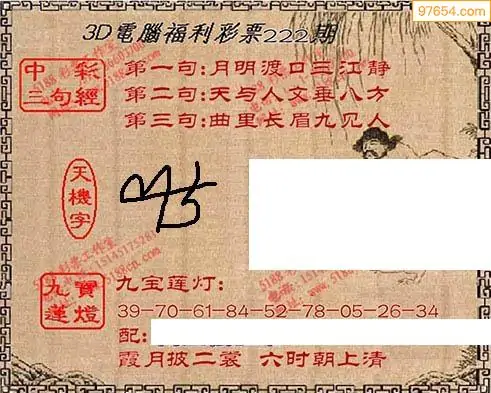 97654.com
3D電腦福利彩票222期
中彩三句經
第一句:月明渡口三江靜
第二句:天与人文垂八方
第三句:曲里长眉九见人
天機字
九寶蓮燈
九宝莲灯:
39-70-61-84-52-78-05-26-34
配:
霞月披二裳 六时朝上清